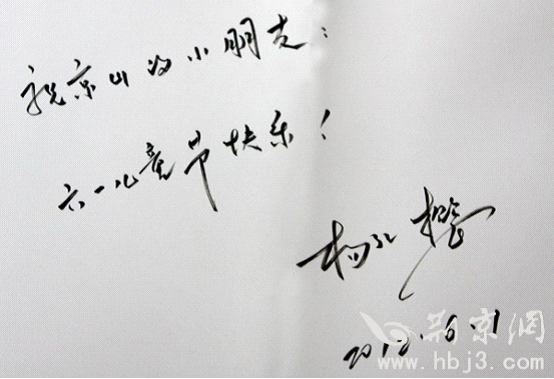 祝京山的小朋友:
六一儿童节快乐!
杨红樱
2012.6.1
荆京网
www.hbj3.com